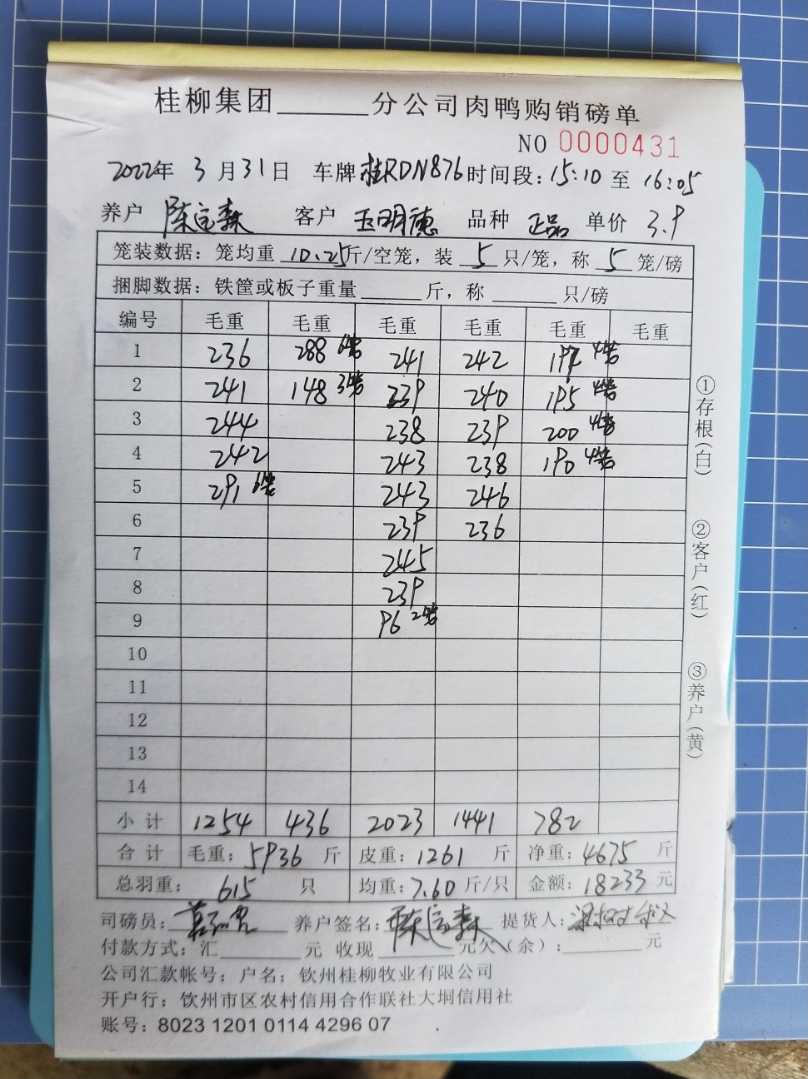 桂柳集团______分公司肉鸭购销磅单
NO 0000431
2022年 3月31日 车牌桂RDN876时间段:15:10至16:05
养户 陈宝森 客户 玉明德 品种 正品 单价 3.9
笼装数据:笼均重 10.25斤/空笼,装 5 只/笼,称 5 笼/磅
捆脚数据:铁筐或板子重量______斤,称______只/磅
编号 毛重 毛重 毛重 毛重 毛重 毛重
1 236 288 6笼 241 242 197 4笼
2 241 148 3笼 239 240 195 4笼
3 244 238 239 200 4笼
4 242 243 238 190 4笼
5 291 6笼 243 246
6 239 236
7 245
8 239
9 96 2笼
10
11
12
13
14
小计 1254 436 2023 1441 782
合计 毛重:5936 斤 皮重:1261 斤 净重:4675 斤
总羽重: 615 只 均重:7.60斤/只 金额:18233元
司磅员: 养户签名:陈宝森 提货人:
付款方式:汇______元 收现______元欠(余):______元
公司汇款帐号:户名:钦州桂柳牧业有限公司
开户行:钦州市区农村信用合作联社大垌信用社
账号:8023 1201 0114 4296 07
①存根(白)
②客户(红)
③养户(黄)